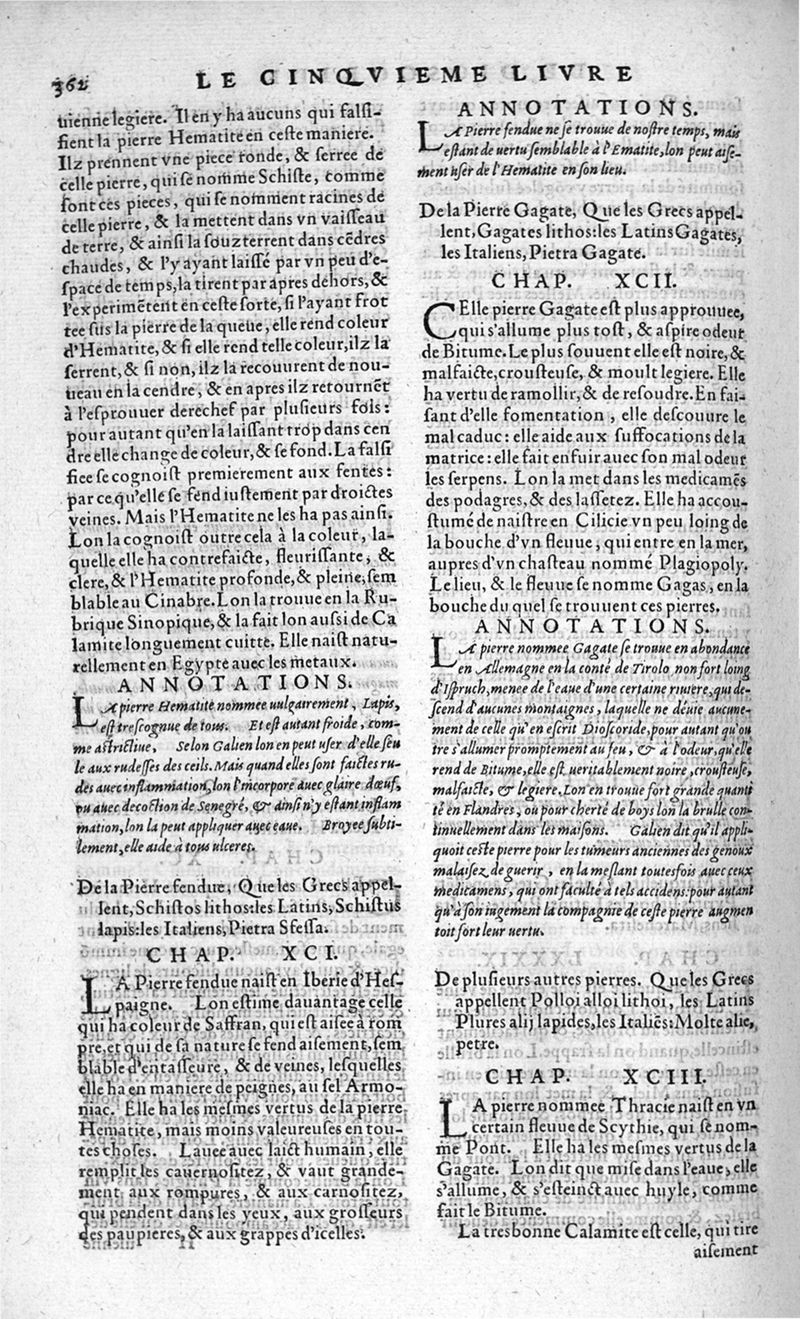 362 LE CINQVIEME LIVRE
uienne legiere. Il en y ha aucuns qui falsi-
fient la pierre Hematite en ceste maniere.
Ilz prennent vne piece ronde, & serree de
celle pierre, qui se nomme Schiste, comme
sont ces pieces, qui se nomment racines de
celle pierre, & la mettent dans vn vaisseau
de terre, & ainsi la souzterrent dans cēdres
chaudes, & l'y ayant laissé par vn peu d'e-
space de temps, la tirent par apres dehors, &
l'experimētent en ceste sorte, si l'ayant frot
tee sus la pierre de la queue, elle rend coleur
d'Hematite, & si elle rend telle coleur, ilz la
serrent, & si non, ilz la recouurent de nou-
ueau en la cendre, & en apres ilz retournēt
à l'esprouuer derechef par plusieurs fois:
pour autant qu'en la laissant trop dans cen
dre elle change de coleur, & se fond. La falsi
fiee se cognoist premierement aux fentes:
par ce, qu'elle se fend iustement par droictes
veines. Mais l'Hematite ne les ha pas ainsi.
Lon la cognoist outre cela à la coleur, la-
quelle elle ha contrefaicte, fleurissante, &
clere, & l'Hematite profonde, & pleine, sem
blable au Cinabre. Lon la trouue en la Ru-
brique Sinopique, & la fait lon aussi de Ca
lamite longuement cuitte. Elle naist natu-
rellement en Egypte auec les metaux.
ANNOTATIONS.
LA pierre Hematité nommee uulgairement, Lapis,
est trescognue de tous. Et est autant froide, com-
me astrictiue, Selon Galien lon en peut user d'elle seu
le aux rudesses des ceils. Mais quand elles sont faictes ru-
des auec inflammation, lon l'incorpore auec glaire dœuf,
ou auec decoction de Senegré, & ainsi n'y estant inflam
mation, lon la peut appliquer auec eaue. Broyee subti-
lement, elle aide à tous ulceres.
De la Pierre fendue, Que les Grecs appel-
lent, Schistos lithos: les Latins, Schistus
lapis: les Italiens, Pietra Sfessa.
CHAP. XCI.
LA Pierre fendue naist en Iberie d'Hes-
paigne. Lon estime dauantage celle
qui ha coleur de Saffran, qui est aisee à rom
pre, et qui de sa nature se fend aisement, sem
blable d'entasseure, & de veines, lesquelles
elle ha en maniere de peignes, au sel Armo-
niac. Elle ha les mesmes vertus de la pierre
Hematite, mais moins valeureuses en tou-
tes choses. Lauee auec laict humain, elle
remplit les cauernositez, & vaut grande-
ment aux rompures, & aux carnositez,
qui pendent dans les yeux, aux grosseurs
des paupieres, & aux grappes d'icelles.
ANNOTATIONS.
LA Pierre fendue ne se trouue de nostre temps, mais
estant de uertu semblable à l'Ematite, lon peut aise-
ment user de l'Hematite en son lieu.
De la Pierre Gagate, Que les Grecs appel-
lent, Gagates lithos: les Latins Gagates,
les Italiens, Pietra Gagate.
CHAP. XCII.
CElle pierre Gagate est plus approuuee,
qui s'allume plus tost, & aspire odeur
de Bitume. Le plus souuent elle est noire, &
malfaicte, crousteuse, & moult legiere. Elle
ha vertu de ramollir, & de resoudre. En fai-
sant d'elle fomentation, elle descouure le
mal caduc: elle aide aux suffocations de la
matrice: elle fait enfuir auec son mal odeur
les serpens. Lon la met dans les medicamēs
des podagres, & des lassetez. Elle ha accou-
stumé de naistre en Cilicie vn peu loing de
la bouche d'vn fleuue, qui entre en la mer,
aupres d'vn chasteau nommé Plagiopoly.
Le lieu, & le fleuue se nomme Gagas, en la
bouche du quel se trouuent ces pierres.
ANNOTATIONS.
LA pierre nommee Gagate se trouue en abondance
en Allemagne en la conté de Tirolo non fort loing
d'Ispruch, menee de l'eaue d'une certaine riuiere, qui de-
scend d'aucunes montaignes, laquelle ne déuie aucune-
ment de celle qu'en escrit Dioscoride, pour autant qu'ou
tre s'allumer promptement au feu, & à l'odeur, qu'elle
rend de Bitume, elle est ueritablement noire, crousteuse,
malfaicte, & legiere. Lon en trouue fort grande quanti
té en Flandres, ou pour cherté de boys lon la brulle con-
tinuellement dans les maisons. Galien dit qu'il appli-
quoit ceste pierre pour les tumeurs anciennes des genoux
malaisez de guerir, en la meslant toutesfois auec ceux
medicamens, qui ont faculté à tels accidens: pour autant
qu'à son iugement la compagnie de ceste pierre augmen
toit fort leur uertu.
De plusieurs autres pierres. Que les Grecs
appellent Polloi alloi lithoi, les Latins
Plures alij lapides, les Italiēs: Molte alie,
petre.
CHAP. XCIII.
LA pierre nommee Thracie naist en vn
certain fleuue de Scythie, qui se nom-
me Pont. Elle ha les mesmes vertus de la
Gagate. Lon dit que mise dans l'eaue, elle
s'allume, & s'esteinct auec huyle, comme
fait le Bitume.
La tresbonne Calamite est celle, qui tire
aisement